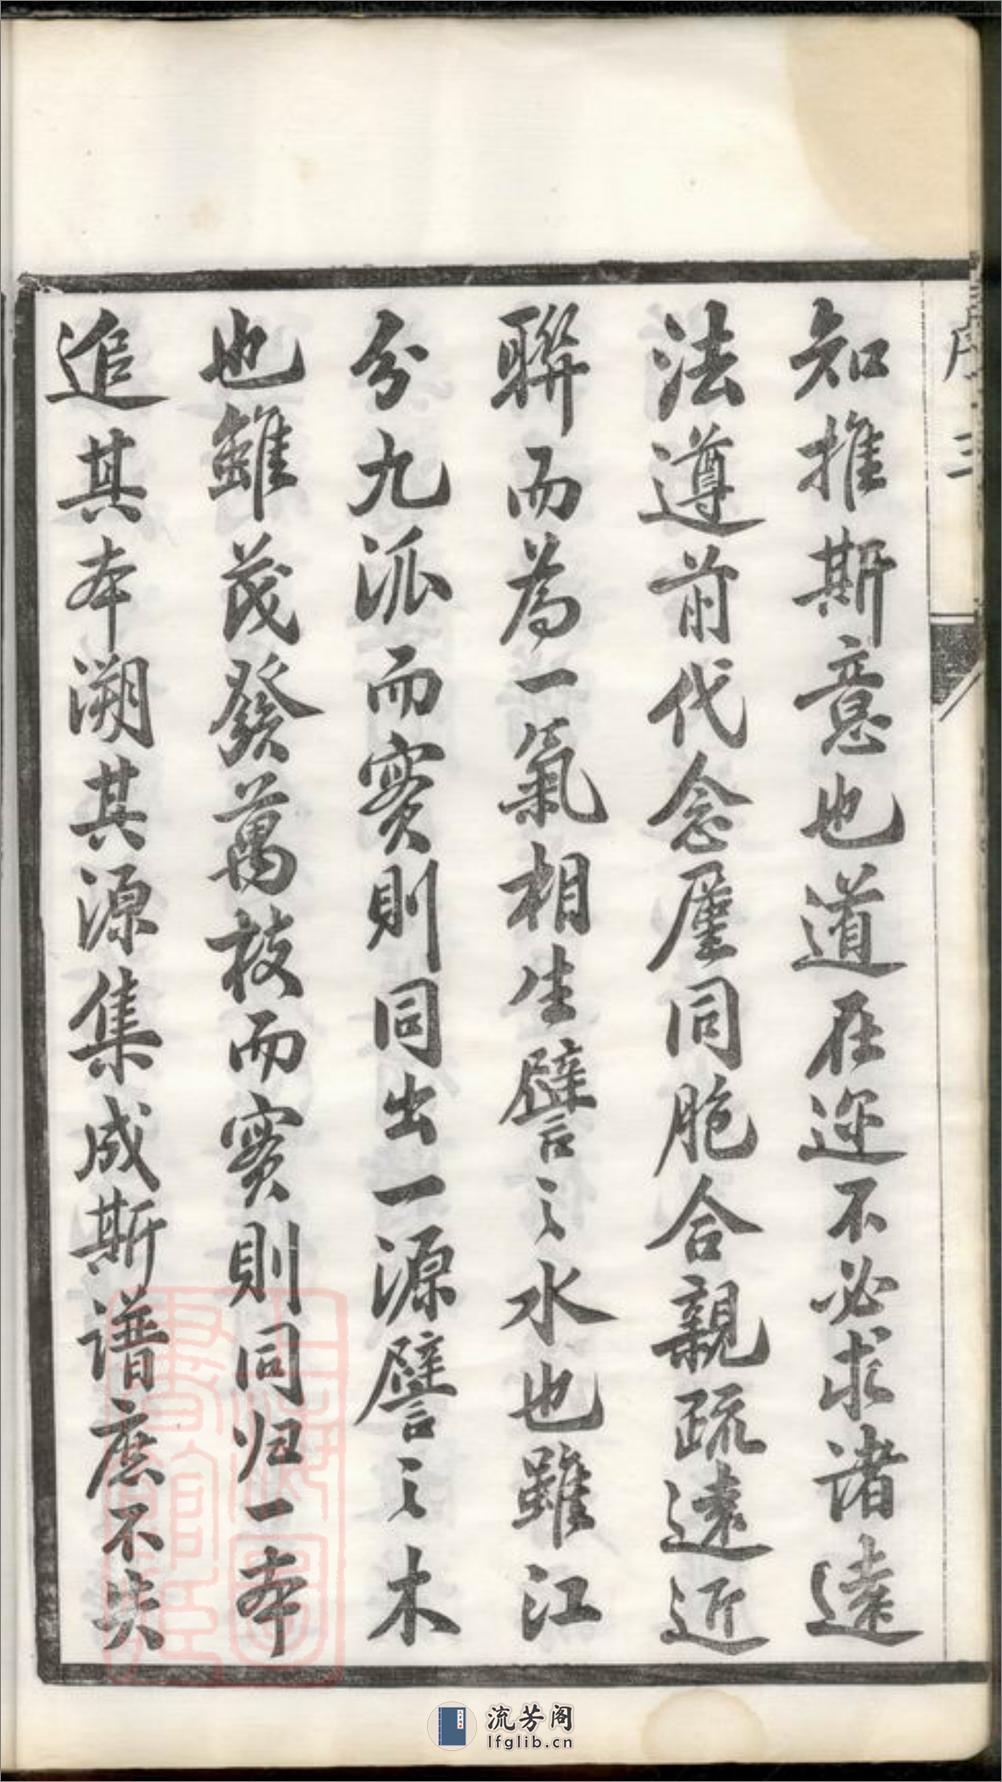 序 三
知推斯意也道在迩不必求諸遠
法遵前代念廑同胞合親疏遠近
聯而為一氣相生譬之水也雖江
分九派而實則同出一源譬之木
也雖茂發萬枝而實則同归一本
追其本溯其源集成斯谱庶不失
上海圖書館藏
流芳阁
lfglib.cn